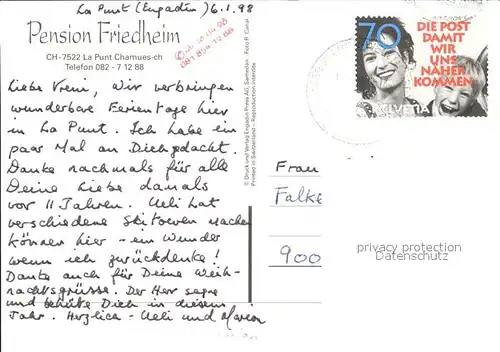 La Punt (Engadin) 6.1.98
Pension Friedheim
CH-7522 La Punt Chamues-ch
Telefon 082 - 7 12 88
081 854 12 88
Liebe Vreni, Wir verbringen
wunderbare Ferientage hier
in La Punt. Ich habe ein
paar Mal an Dich gedacht.
Danke nachmals für alle
Deine Liebe damals
vor 11 Jahren. Ueli hat
verschiedene Skitouren machen
können hier - ein Wunder
wenn ich zurückdenke!
Danke auch für Deine Weih-
nachtsgrüsse. Der Herr segne
und behüte Dich in diesem
Jahr. Herzlich - Ueli und Marion
© Druck und Verlag Engadin Press AG, Samedan Foto R. Canal
Printed in Switzerland – Reproduction interdite
70
DIE POST
DAMIT
WIR
UNS
NÄHER
KOMMEN
HELVETIA
Frau
Falke
900
privacy protection
Datenschutz